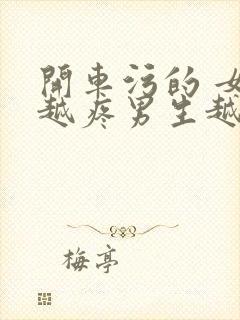 開車污的 女
越疼男生越
梅亭